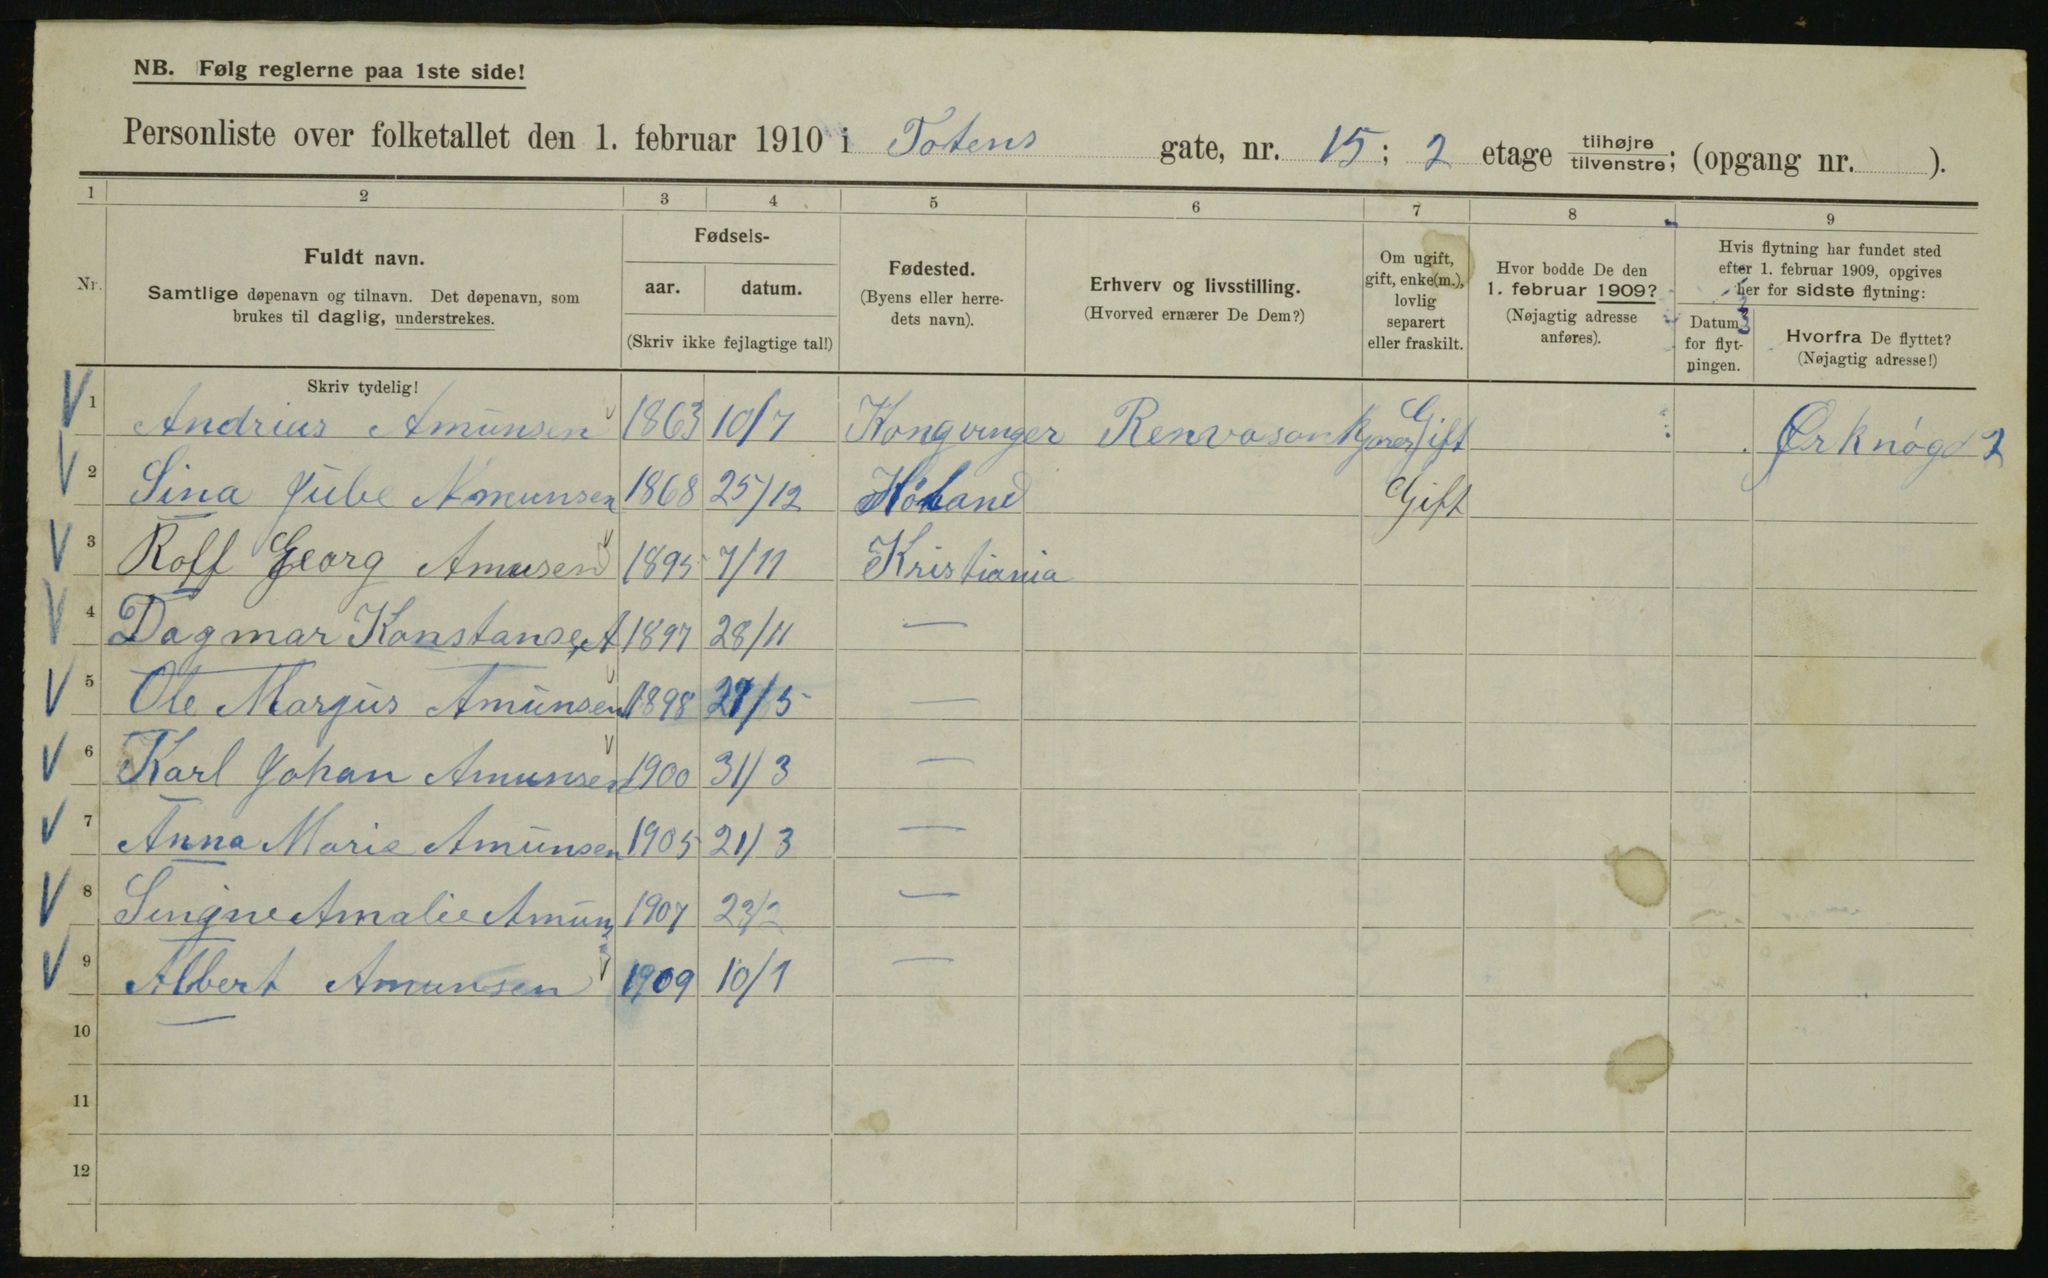 NB. Følg reglerne paa 1ste side!
Personliste over folketallet den 1. februar 1910 i Totens gate, nr. 15; 2 etage tilhøjre tilvenstre; (opgang nr. ).
1 2 3 4 5 6 7 8 9
Nr.
Fuldt navn.
Samtlige døpenavn og tilnavn. Det døpenavn, som
brukes til daglig, understrekes.
Skriv tydelig!
Fødsels-
aar. datum.
(Skriv ikke fejlagtige tal!)
Fødested.
(Byens eller herre-
dets navn).
Erhverv og livsstilling.
(Hvorved ernærer De Dem?)
Om ugift,
gift, enke(m.),
lovlig
separert
eller fraskilt.
Hvor bodde De den
1. februar 1909?
(Nøjagtig adresse
anføres).
Hvis flytning har fundet sted
efter 1. februar 1909, opgives
her for sidste flytning:
Datum
for flyt-
ningen.
Hvorfra De flyttet?
(Nøjagtig adresse!)
1 Andrius Amunsen 1863 10/7 Kongvinger Gift
2 Sina Jube Amunsen 1868 25/12 Høland Gift
3 Rolf Georg Amusen 1895 7/11 Kristiania
4 Dagmar Konstanse, A 1897 28/11 —
5 Ole Margus Amunsen 1898 /5 —
6 Karl Johan Amunsen 1900 31/3 —
7 Anna Marie Amunsen 1905 21/3 —
8 Singne Amalie Amuns 1907 23/2 —
9 Albert Amunsen 1909 10/1 —
10
11
12